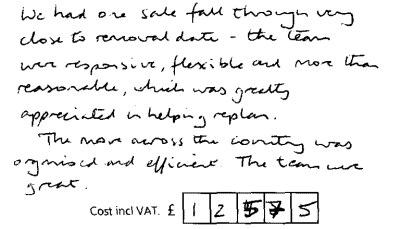 We had one sale fall through very
close to removal date - the team
were responsive, flexible and more than
reasonable, which was greatly
appreciated in helping replan.
The move across the country was
organised and efficient. The team were
great.
Cost incl VAT. £ 1 2 5 7 5